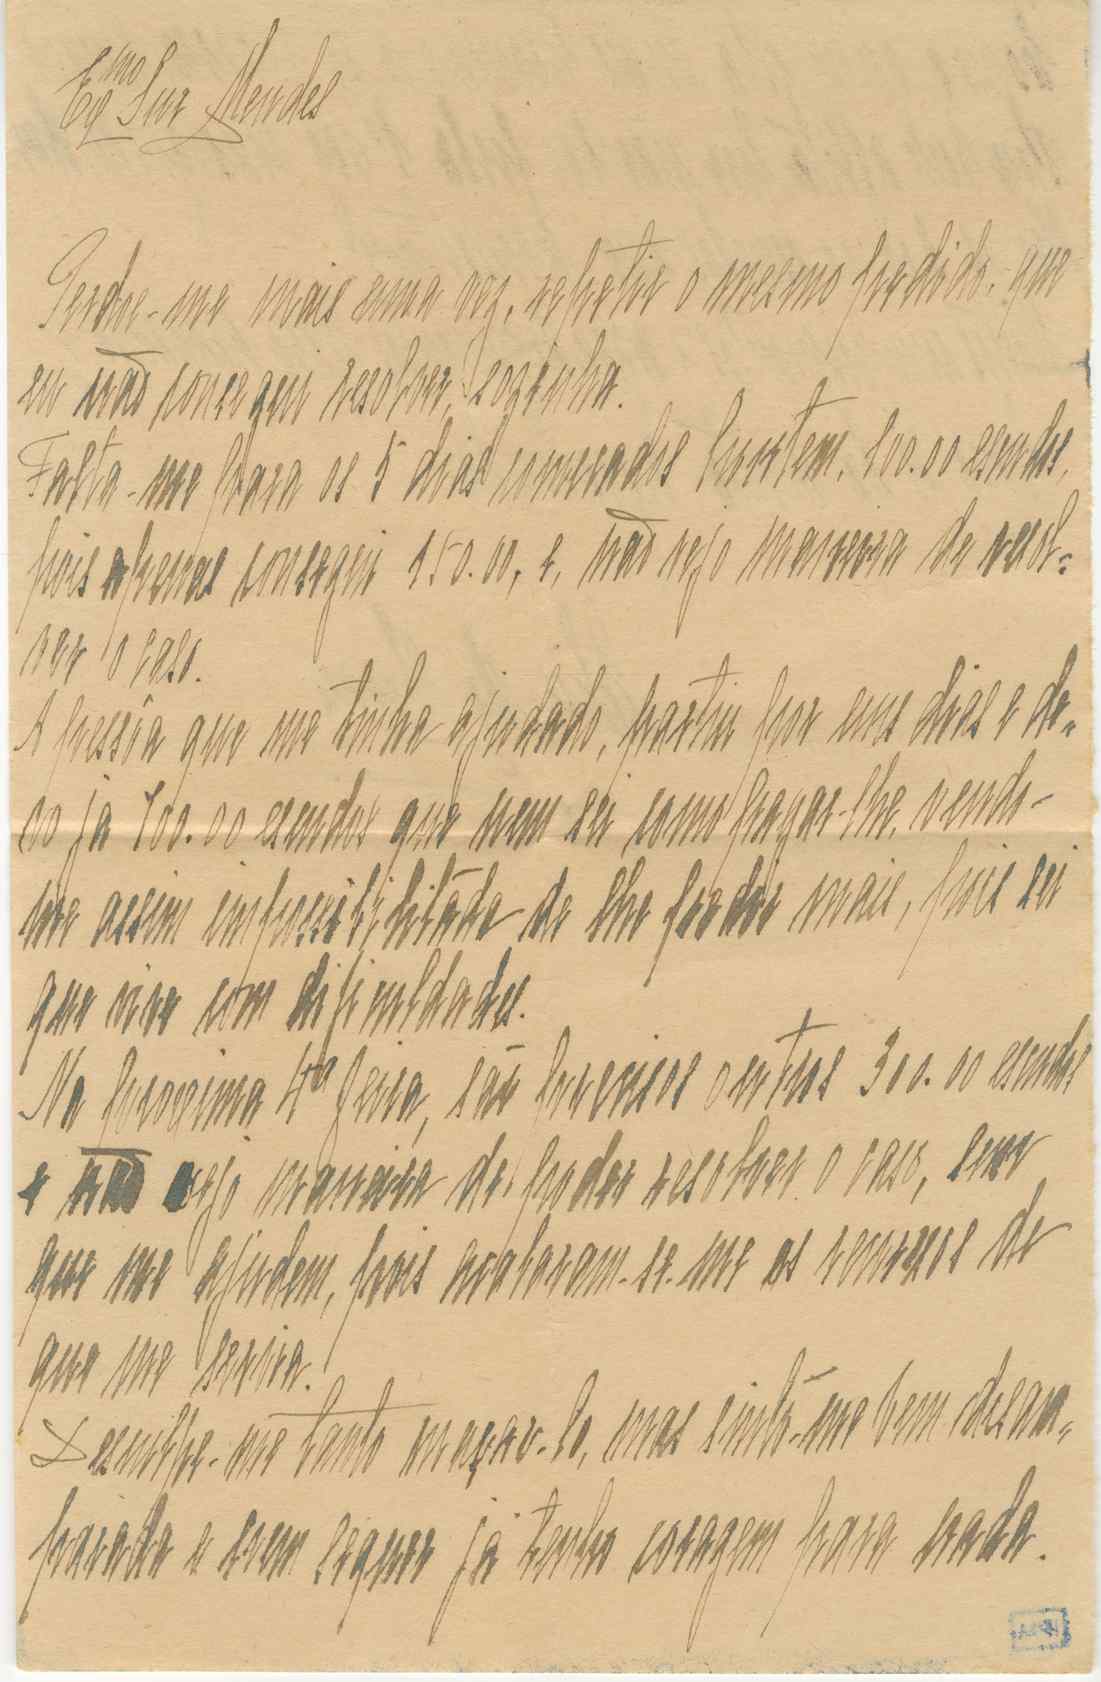 Exmo Snr Mendes
Perdoe-me mais uma vez, repetir o mesmo pedido, que
eu não consegui resolver, sozinha.
Falta-me para os 5 dias começados hontem, 100.00 escudos,
pois apenas consegui 150.00, e, não vejo maneira de resol=
ver o caso.
A pessôa que me tinha ajudado, partiu por uns dias e de=
vo já 700.00 escudos que nem sei como pagar-lhe, vendo-
me assim impossibilitada de lhe pedir mais, pois sei
que vive com dificuldades.
Na proxima 4ª feira, são precisos outros 300.00 escudos
e não vejo maneira de poder resolver o caso, sem
que me ajudem, pois acabaram-se-me os recursos de
que me servia.
Desculpe-me tanto maçar-lo, mas sinto-me bem desam=
parada e nem sequer já tenho coragem para nada.